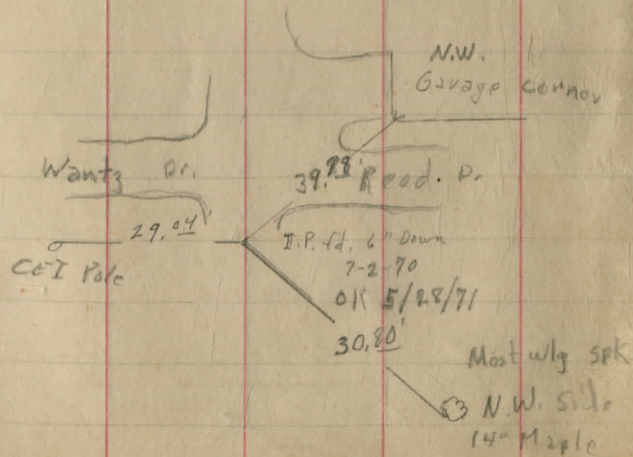 N.W.
Garage corner
Wantz Dr.
39.88' Reed. Dr.
29.04
I.P. fd. 6" Down
7-2-70
CEI Pole
OK 5/28/71
30.80'
Most wlg spk
N.W. Side
14" Maple